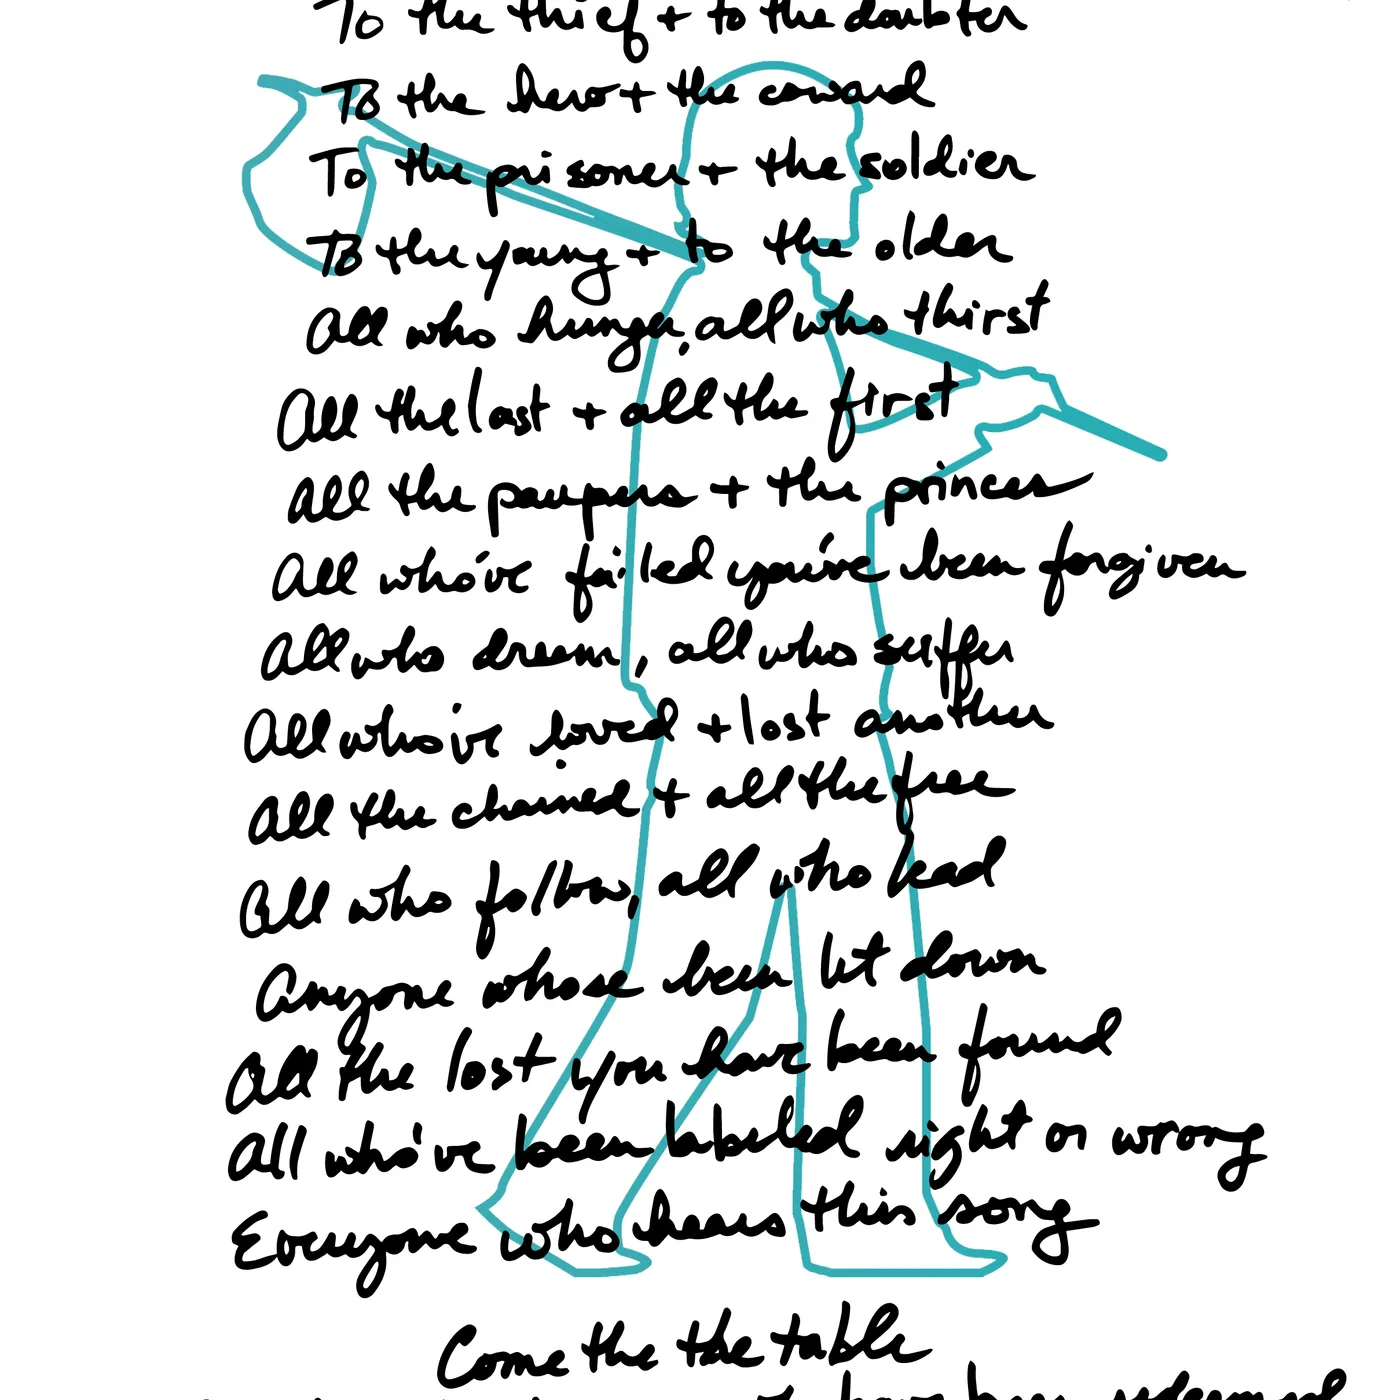 To the thief + to the doubter
To the hero + the coward
To the prisoner + the soldier
To the young + to the older
All who hunger, all who thirst
All the last + all the first
All the paupers + the princes
All who've failed you've been forgiven
All who dream, all who suffer
All who've loved + lost another
All the chained + all the free
All who follow, all who lead
Anyone whose been let down
All the lost you have been found
All who've been labeled right or wrong
Everyone who hears this song
Come the the table
have been redeemed